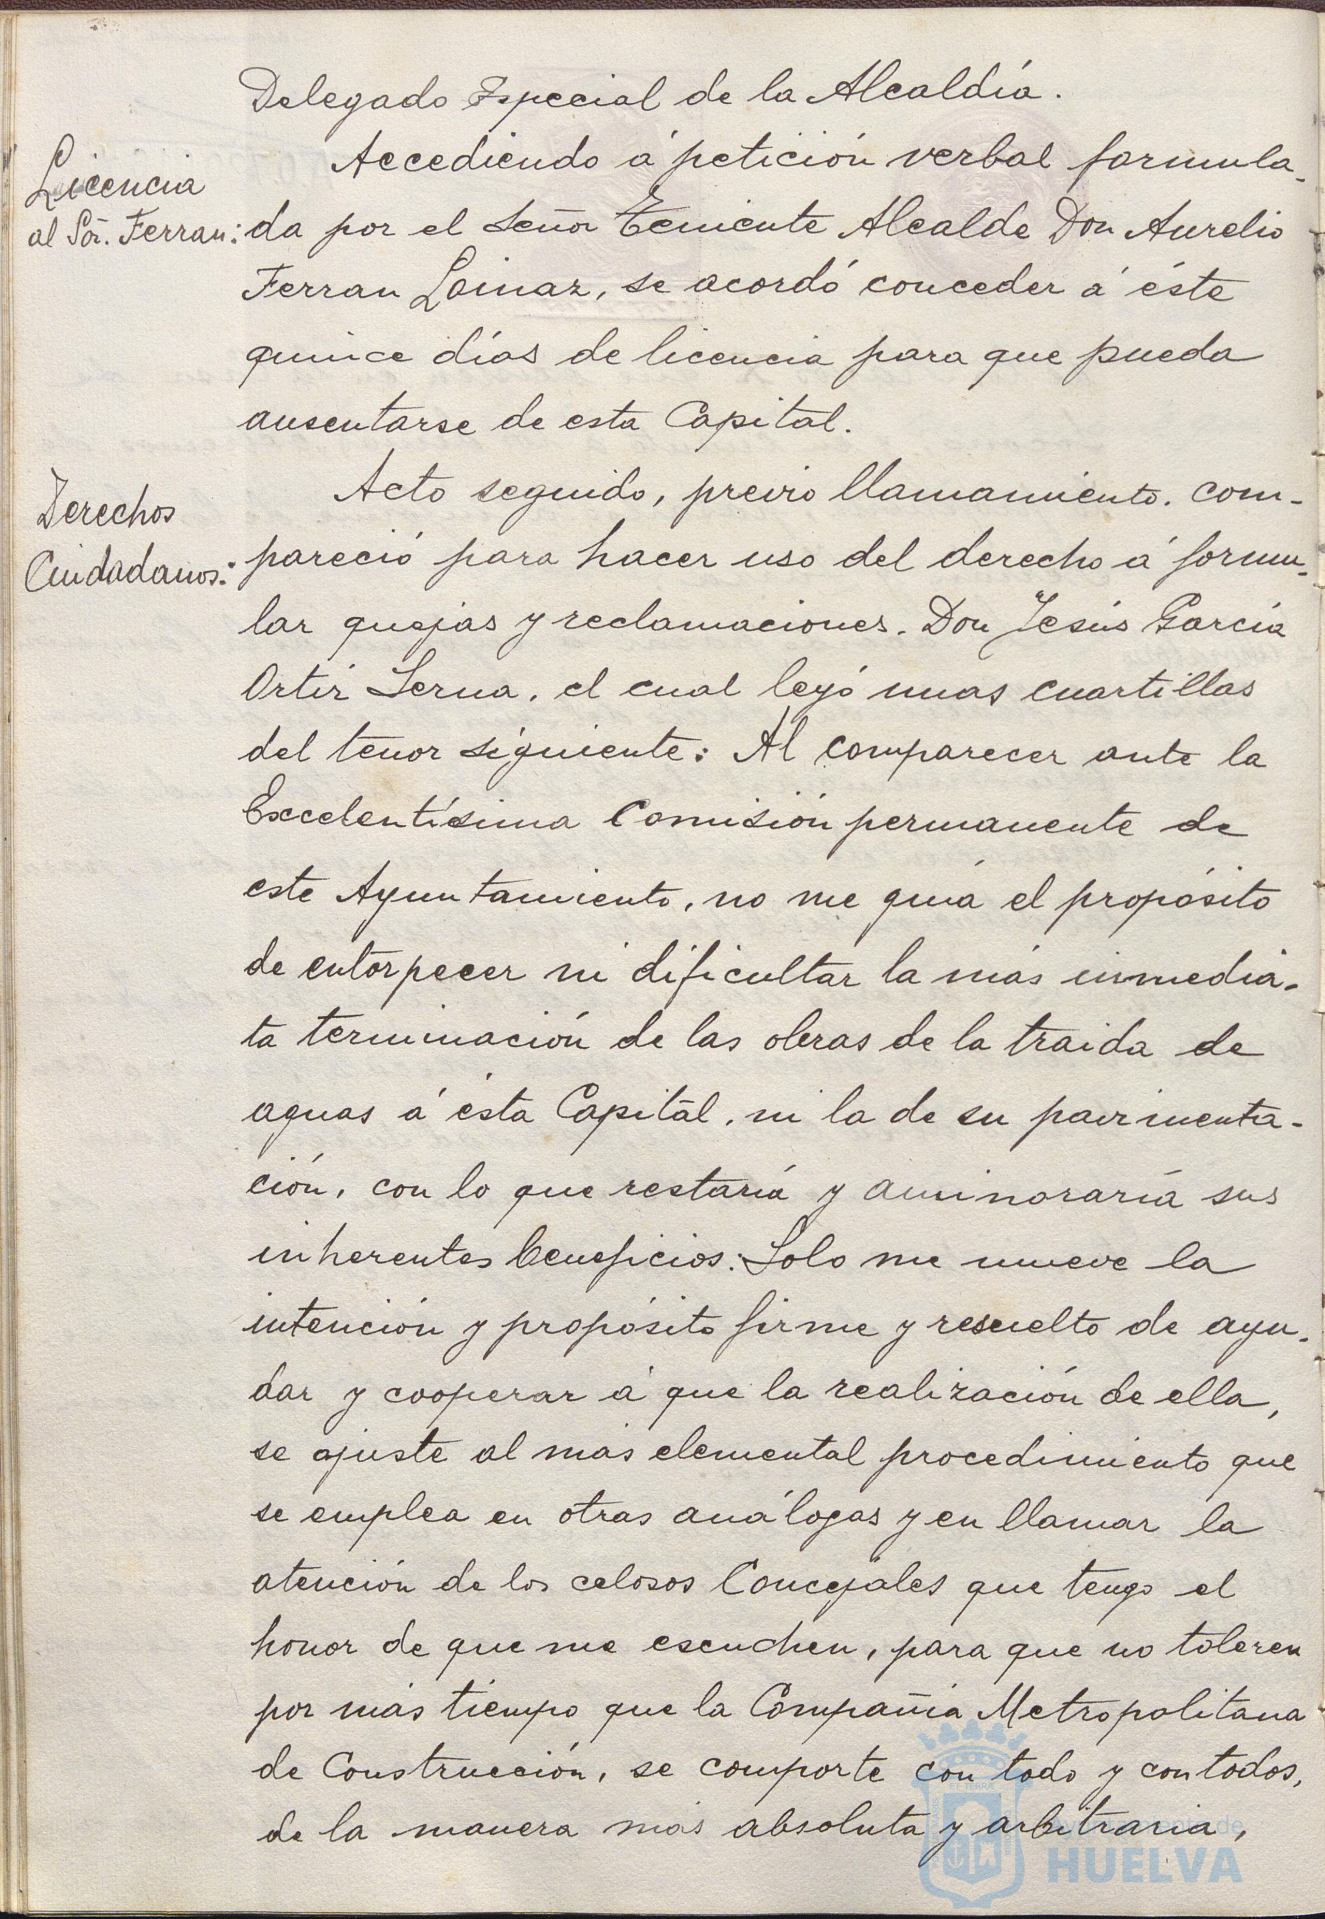 Delegado Especial de la Alcaldía.
Licencia
al Sor. Ferran:
Accediendo á petición verbal formula-
da por el Señor Teniente Alcalde Don Aurelio
Ferran Loinaz, se acordó conceder á éste
quince días de licencia para que pueda
ausentarse de esta Capital.
Derechos
Ciudadanos:
Acto seguido, previo llamamiento. com-
pareció para hacer uso del derecho á formu-
lar quejas y reclamaciones. Don Jesús García
Ortir Serna. el cual leyó unas cuartillas
del tenor siguiente: Al comparecer ante la
Excelentísima Comisión permanente de
este Ayuntamiento, no me guía el propósito
de entorpecer ni dificultar la más inmedia-
ta terminación de las obras de la traida de
aguas á ésta Capital. ni la de su pavimenta-
ción, con lo que restaría y aminoraría sus
inherentes beneficios: Solo me mueve la
intención y propósito firme y resuelto de ayu-
dar y cooperar á que la realización de ella,
se ajuste al más elemental procedimiento que
se emplea en otras análogas y en llamar la
atención de los celosos Concejales que tengo el
honor de que me escuchen, para que no toleren
por más tiempo que la Compañía Metropolitana
de Construcción, se comporte con todo y con todos,
de la manera más absoluta y arbitraria,
Ayuntamiento de
HUELVA